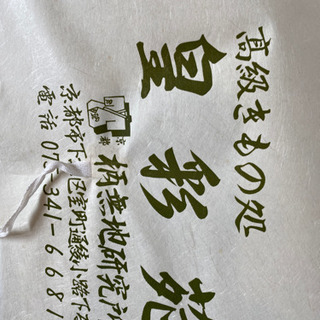 高級きもの処
皇彩苑
柄無地研究所
京都市下京区室町通綾小路下る
電話 075-341-6687